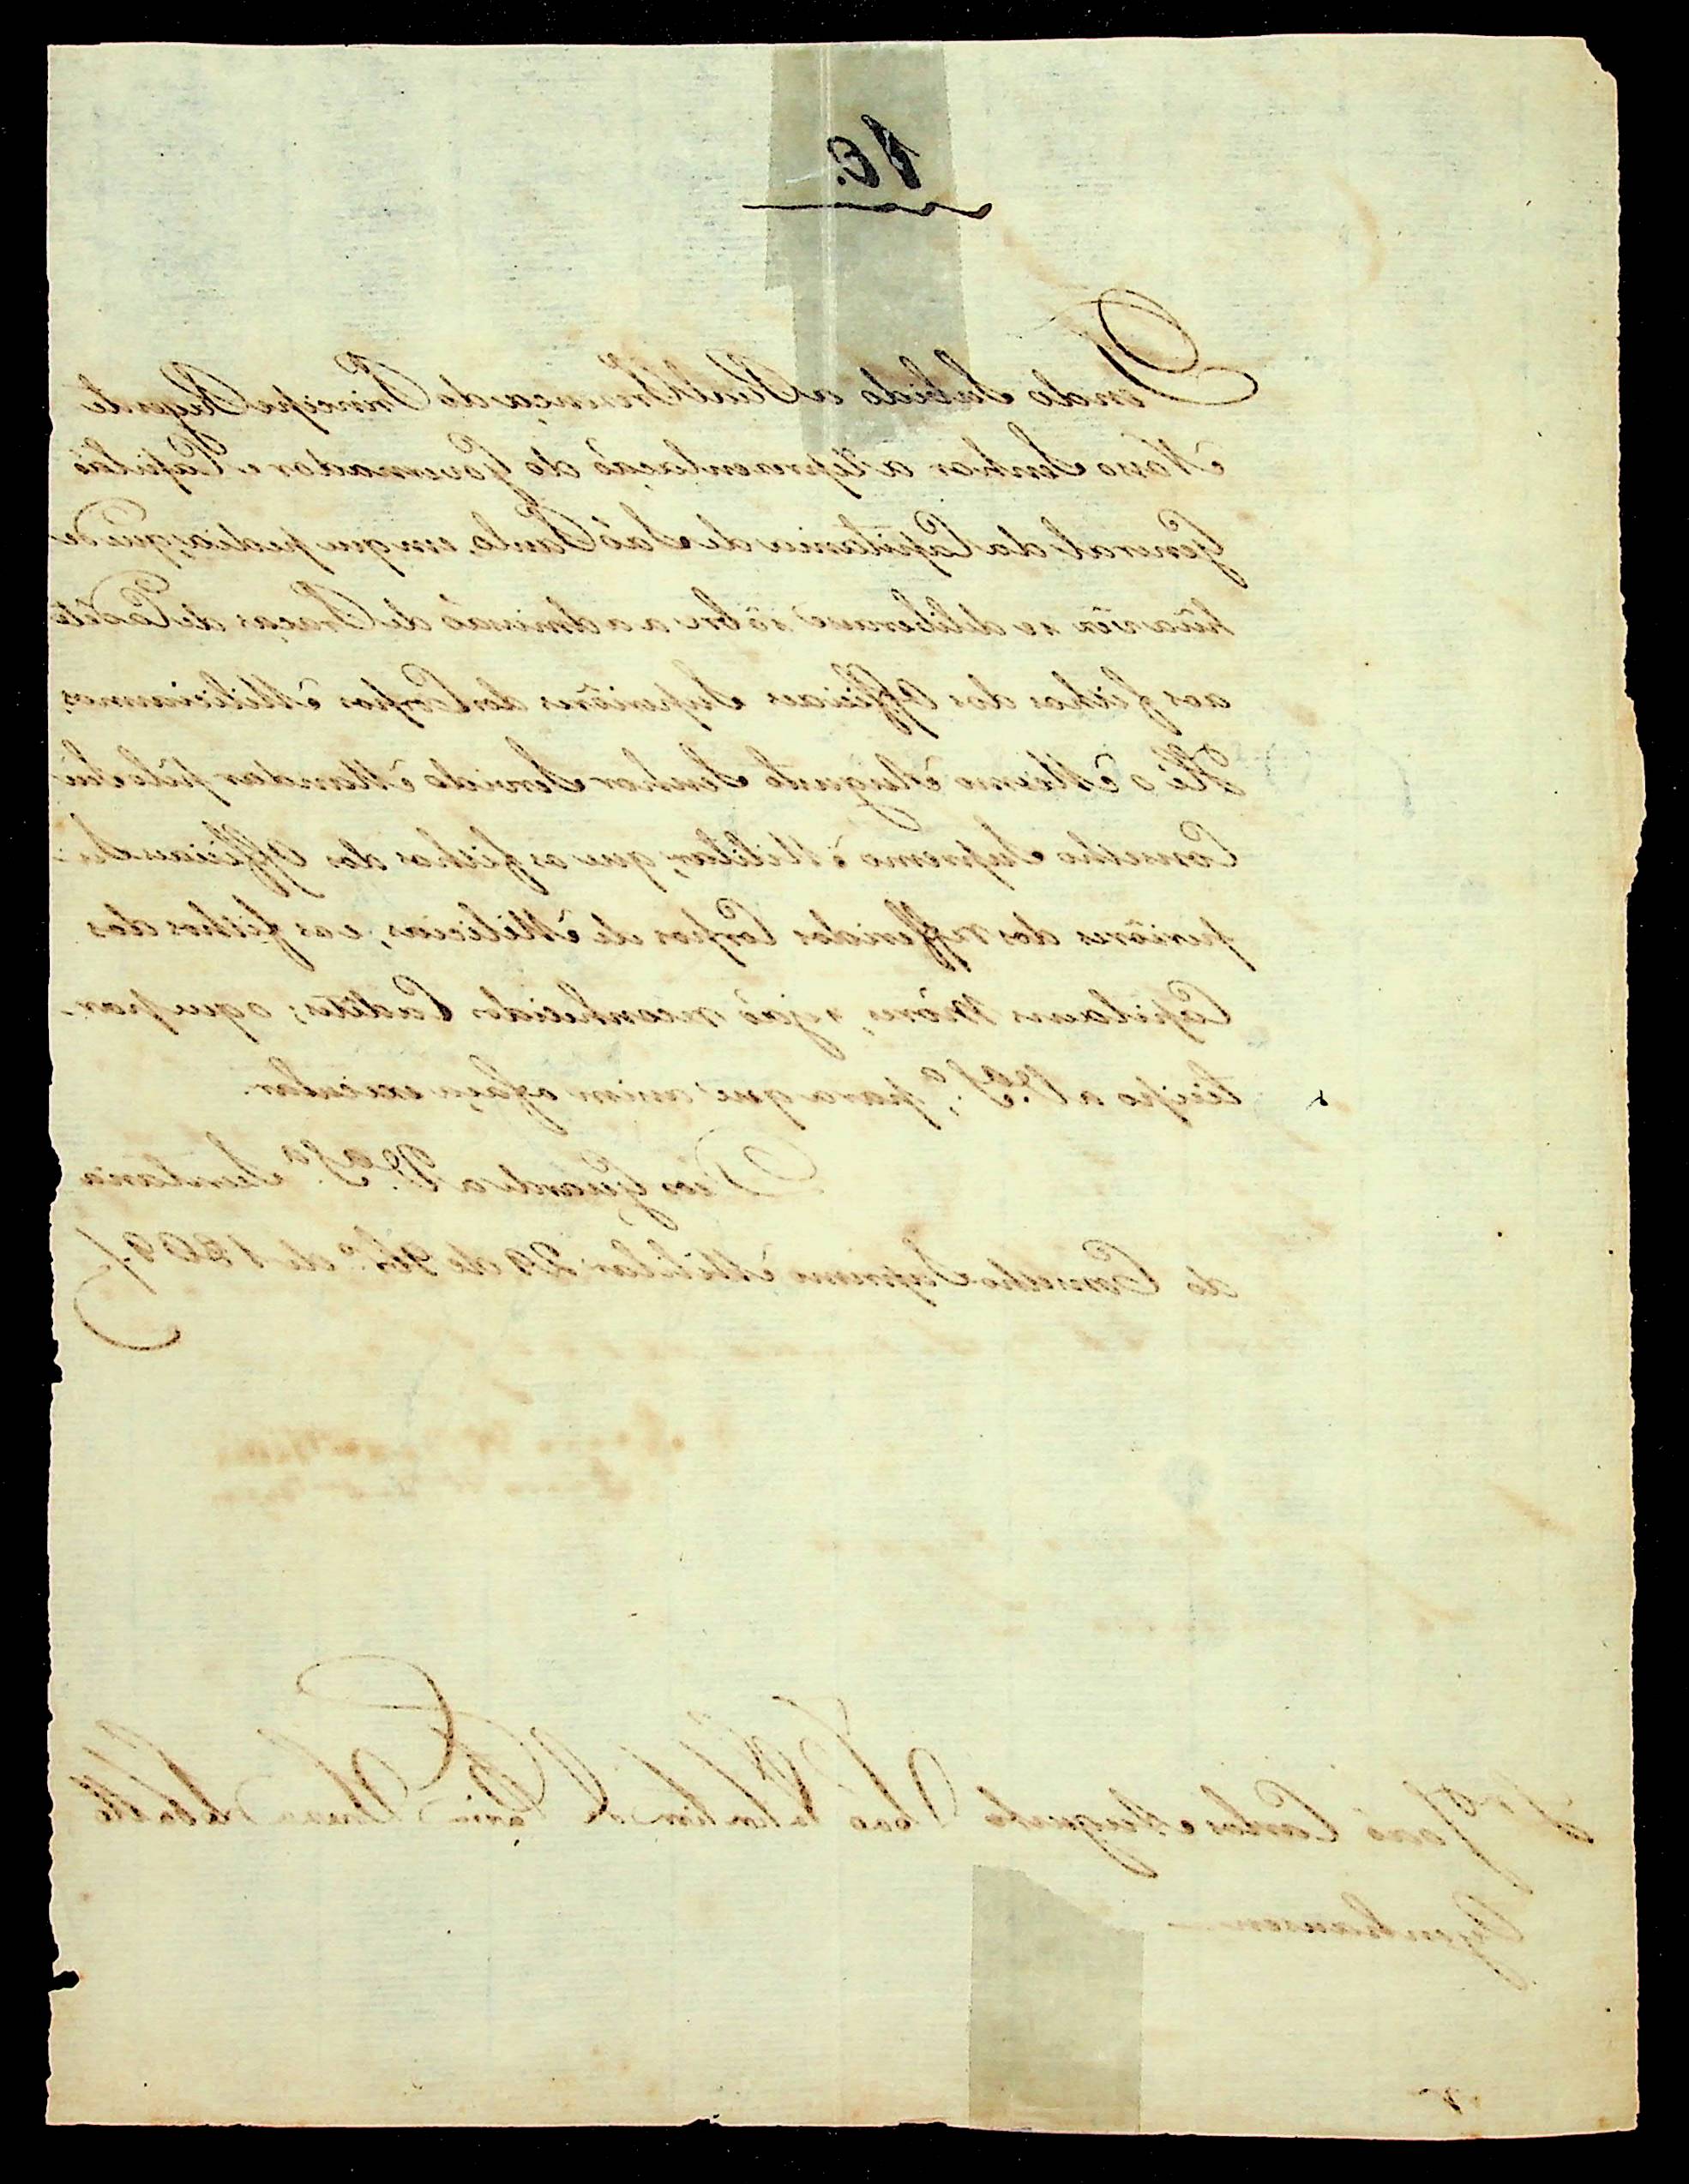 1C.
Tendo Subido a Real Prezença do Principe Regente
Nosso Senhor a Reprezentação do Governador e Capitão
General da Capitania de Saõ Paulo, em que pedia, que de
huã vêz se deliberasse sôbre a admissaõ de Praças de Cadêtes
aos filhos dos Officiaes Superiôres dos Corpos Milicianos,
Hé o Mesmo Augusto Senhor Servido Mandar pêlo Seu
Conselho Supremo Militar, que os filhos dos Officiaes Su-
periôres dos refferidos Corpos de Milicias, e os filhos dos
Capitaens Móres, sejaõ reconhecidos Cadêtes; o que par-
ticipo a V. S.ª, para que assim o faça executar.
Deos Guarde a V. S.ª Secretaria
do Conselho Supremo Militar 29 de 9br.º de 1809
Sr. João Carlos Augusto
Oyenhausen